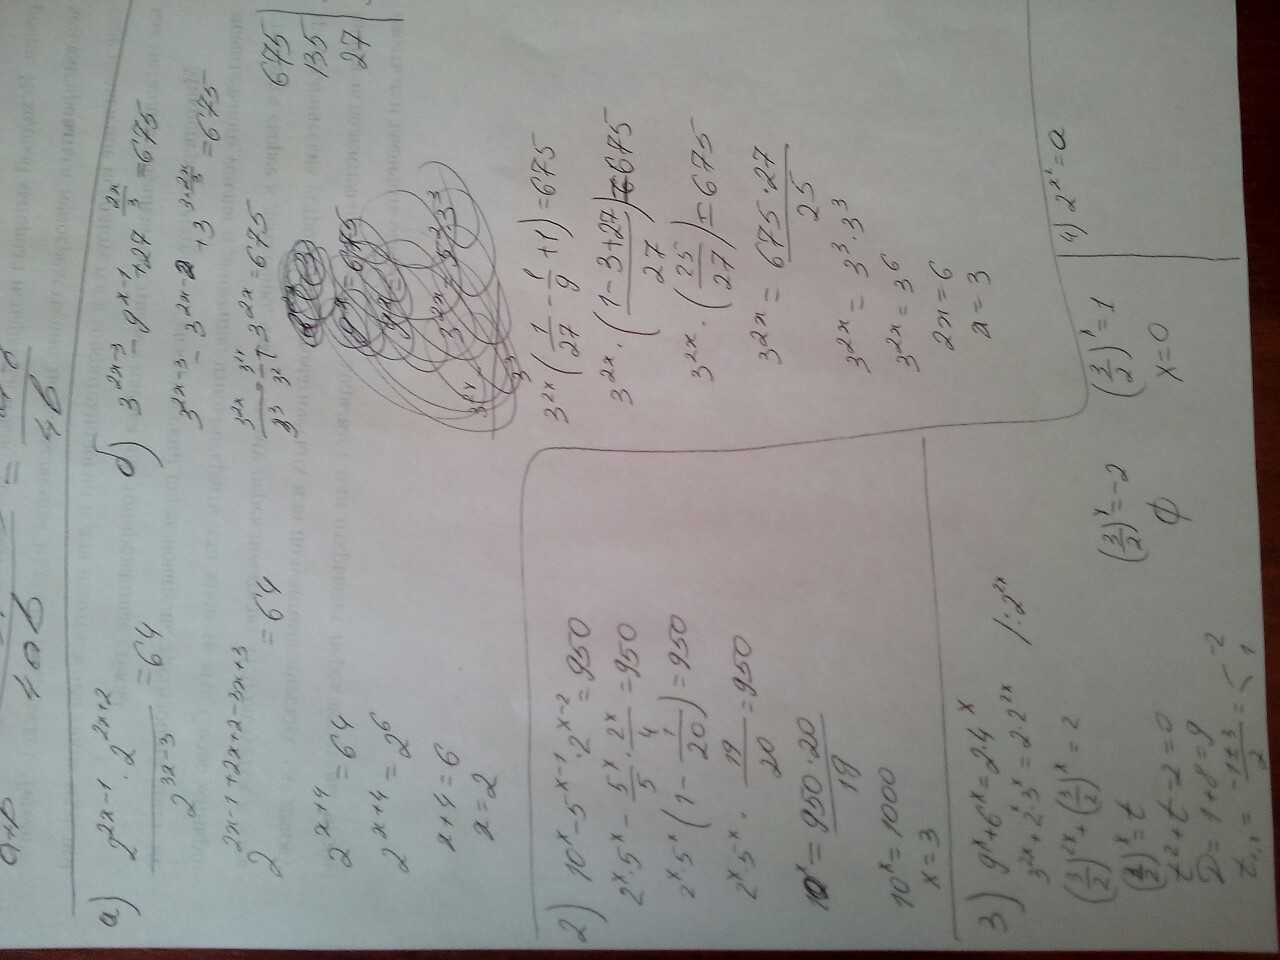 а) 2^{2x-1} · 2^{2x+2} / 2^{3x-3} = 64
2^{2x-1+2x+2-3x+3} = 64
2^{x+4} = 64
2^{x+4} = 2^6
x+4=6
x=2
б) 3^{2x-3} - 9^{x-1} + 27^{2x/3} = 675
3^{2x-3} - 3^{2x-2} + 3^{3·2x/3} = 675
3^{2x}/3^3 - 3^{2x}/3^2 + 3^{2x} = 675
675
135
27
3^{2x} (1/27 - 1/9 + 1) = 675
3^{2x} · (1-3+27 / 27) = 675
3^{2x} · (25/27) = 675
3^{2x} = 675·27 / 25
3^{2x} = 3^3 · 3^3
3^{2x} = 3^6
2x=6
x=3
2) 10^x - 5^{x-1} · 2^{x-2} = 950
2^x · 5^x - 5^x/5 · 2^x/4 = 950
2^x 5^x (1 - 1/20) = 950
2^x 5^x · 19/20 = 950
10^x = 950·20 / 19
10^x = 1000
x=3
3) 9^x + 6^x = 2·4^x
3^{2x} + 2^x · 3^x = 2·2^{2x} /: 2^{2x}
(3/2)^{2x} + (3/2)^x = 2
(3/2)^x = t
t^2 + t - 2 = 0
D = 1+8 = 9
t_{1,2} = -1±3 / 2 = -2
1
(3/2)^x = -2
∅
(3/2)^x = 1
x=0
4) 2^{x^2} = a